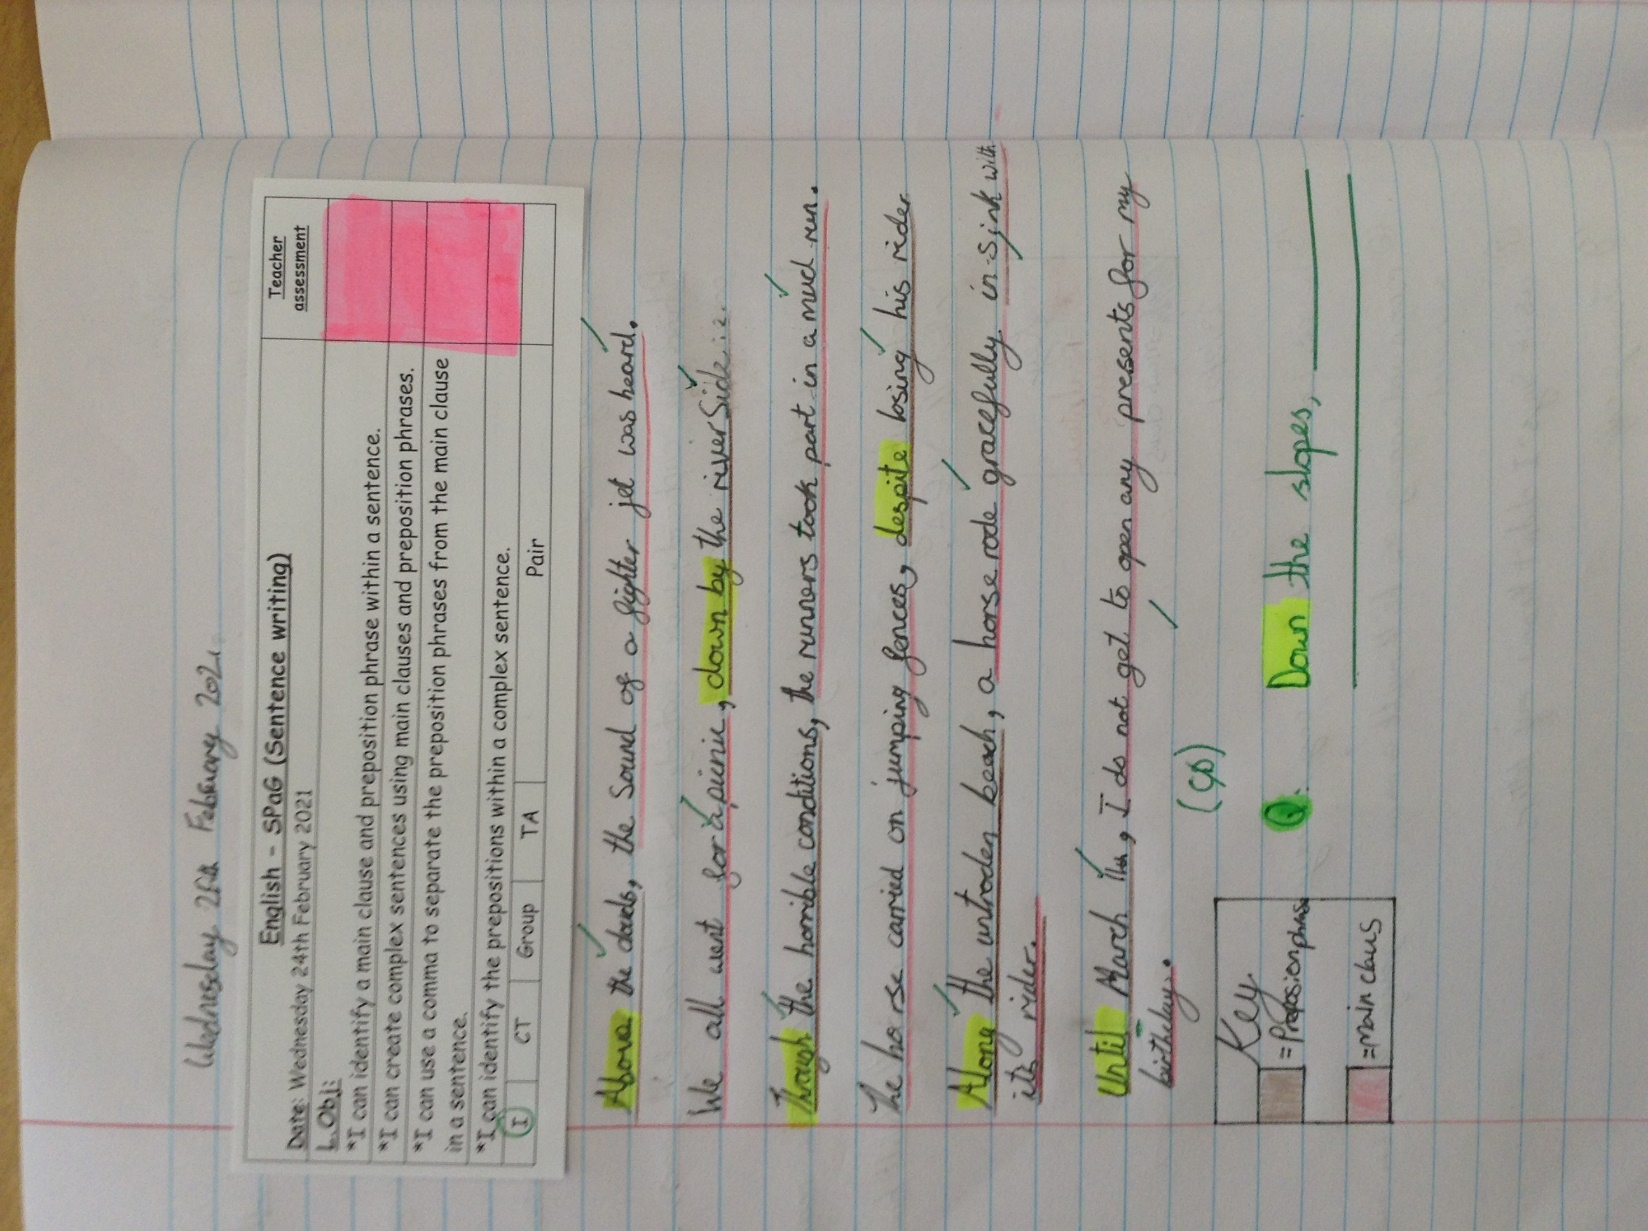 Wednesday 24th February 2021.
English - SPaG (Sentence writing)
Date: Wednesday 24th February 2021
Teacher assessment
L.Obj:
*I can identify a main clause and preposition phrase within a sentence.
*I can create complex sentences using main clauses and preposition phrases.
*I can use a comma to separate the preposition phrases from the main clause
in a sentence.
*I can identify the prepositions within a complex sentence.
I CT Group TA Pair
Above the clouds, the Sound of a fighter jet was heard.
We all went for a picnic, down by the river Side
Through the horrible conditions, the runners took part in a mud run.
The horse carried on jumping fences, despite losing his rider
Along the untroden beach, a horse rode gracefully in-sink with
its rider.
Until March 11th, I do not get to open any presents for my
birthday.
Key
=Preposion phrase
=main claus
Q. Down the slopes,